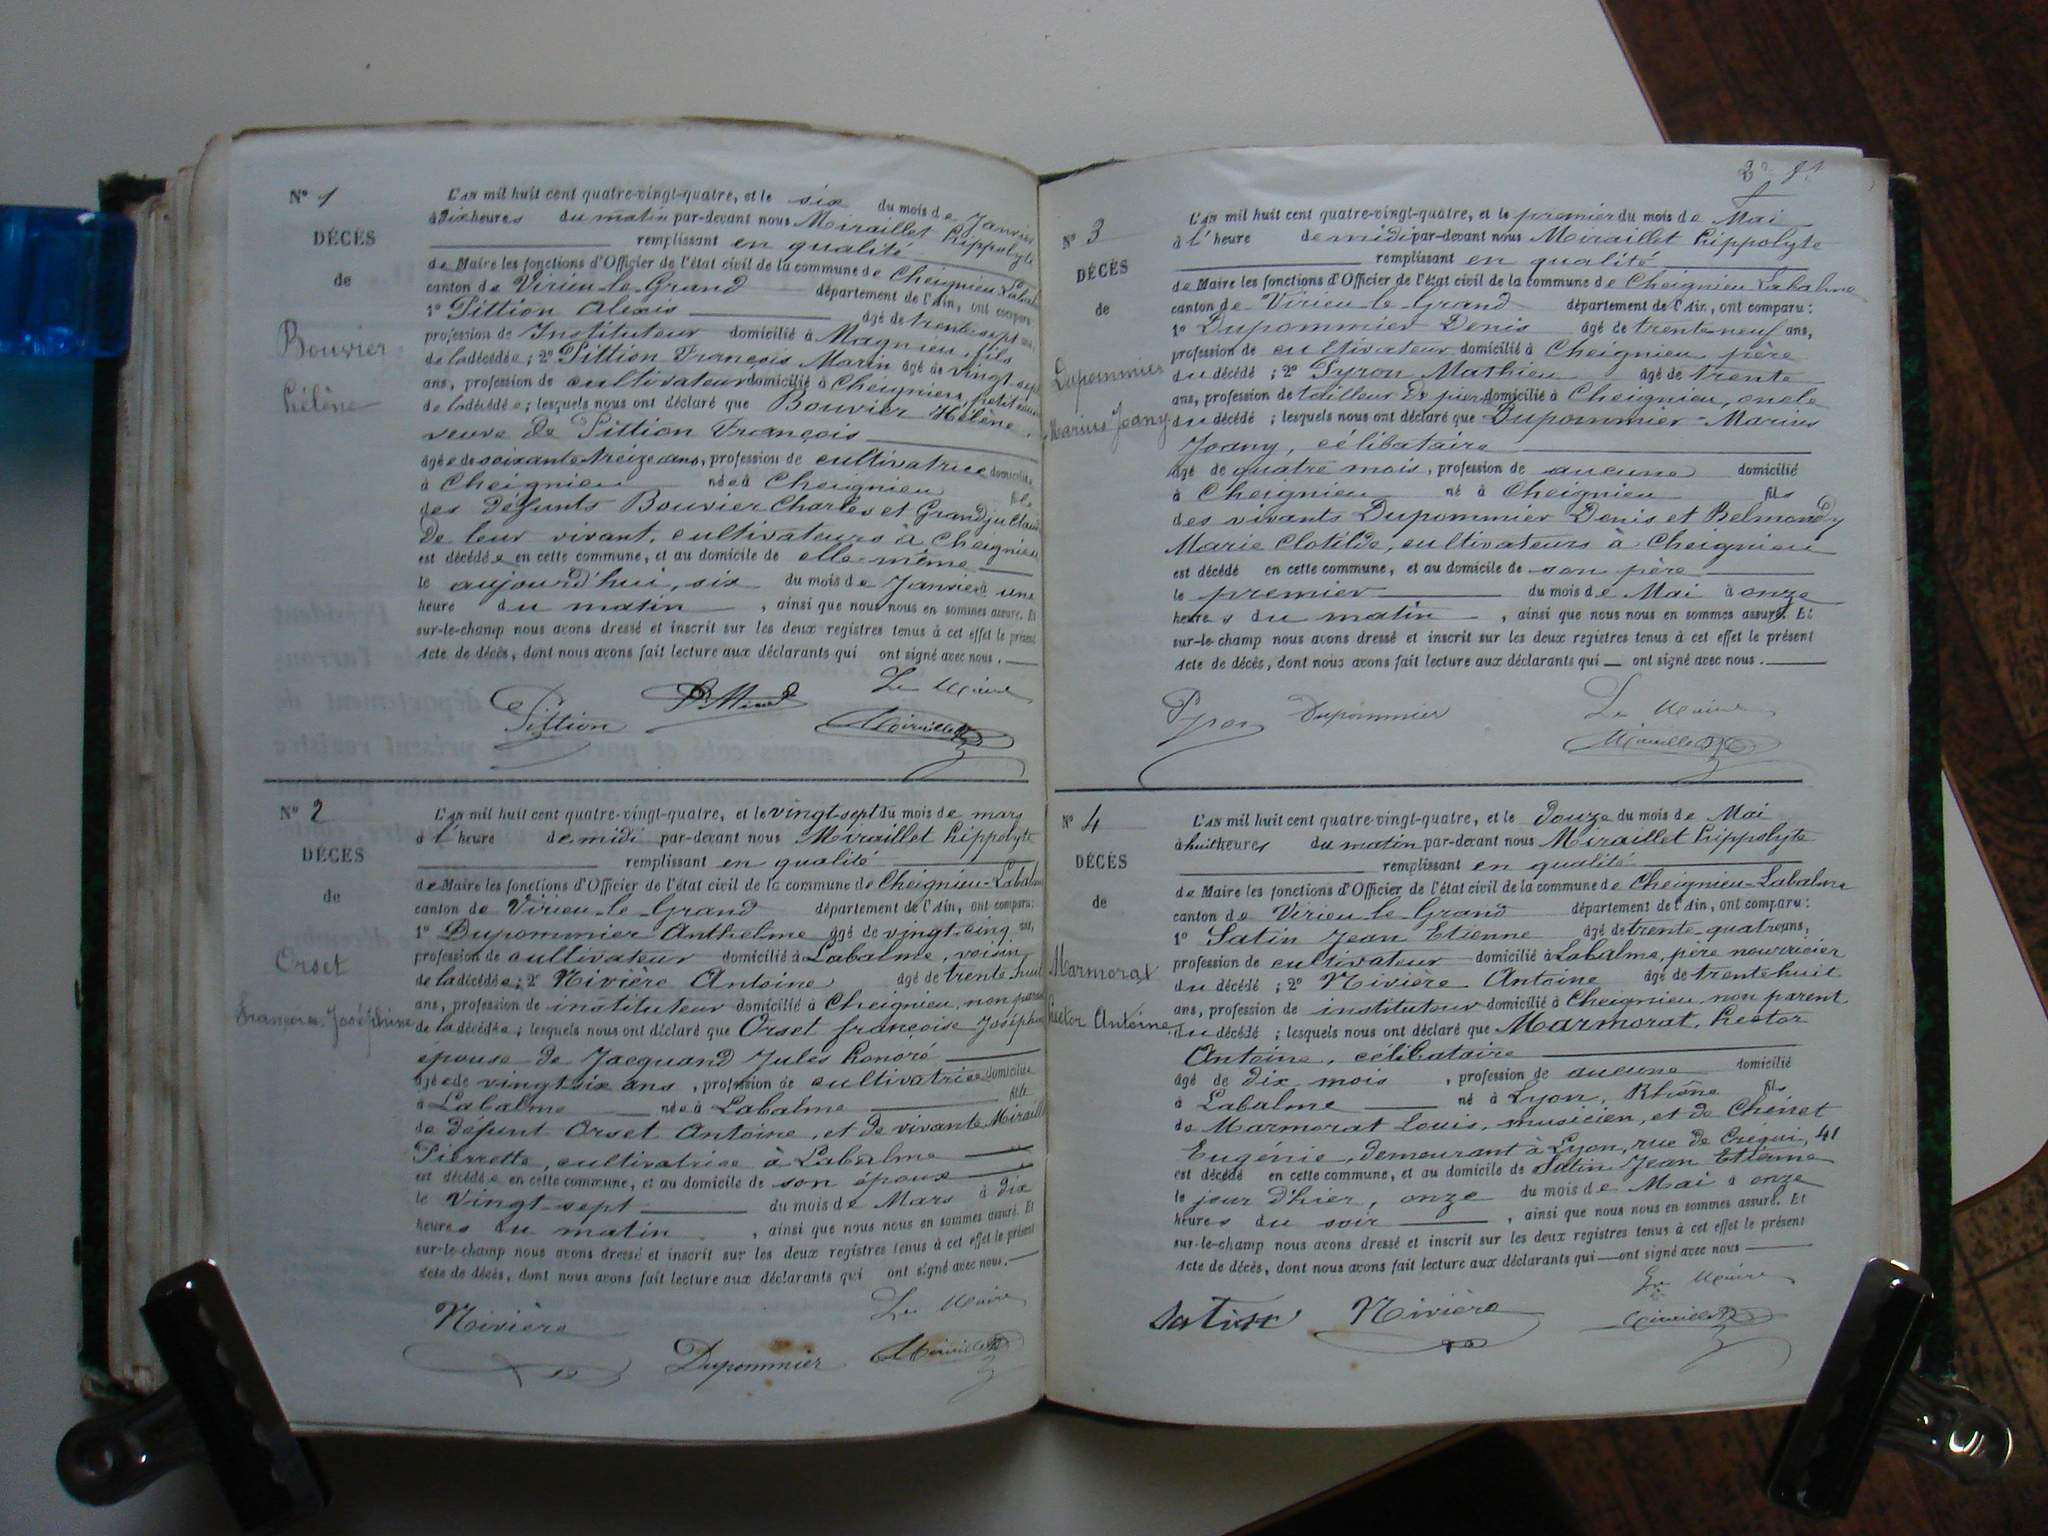 N° 1
DÉCÈS
de
Bouvier
hélène
L'AN mil huit cent quatre-vingt-quatre, et le six du mois de Janvier
à dix heures du matin par-devant nous Miraillet hippolyte
remplissant en qualité
de Maire les fonctions d'Officier de l'état civil de la commune de Cheignieu-Labalme
canton de Virieu-le-Grand département de l'Ain, ont comparu:
1° Pittion Alexis âgé de trente-sept ans,
profession de Instituteur domicilié à Magnieu, fils
de la décédée; 2° Pittion François Marin âgé de vingt-sept
ans, profession de cultivateur domicilié à Cheignieu, petit
de la décédée; lesquels nous ont déclaré que Bouvier Hélène,
veuve de Pittion François
âgée de soixante treize ans, profession de cultivatrice domiciliée
à Cheignieu née à Cheignieu fille
des défunts Bouvier Charles et
de leur vivant, cultivateurs à Cheignieu
est décédée en cette commune, et au domicile de elle-même
le aujourd'hui, six du mois de Janvier à une
heure du matin, ainsi que nous nous en sommes assuré. Et
sur-le-champ nous avons dressé et inscrit sur les deux registres tenus à cet effet le présent
Acte de décès, dont nous avons fait lecture aux déclarants qui ont signé avec nous.
Le Maire
Pittion Miraillet
N° 2
DÉCÈS
de
Orset
françoise Joséphine
L'AN mil huit cent quatre-vingt-quatre, et le vingt-sept du mois de mars
à l'heure de midi par-devant nous Miraillet hippolyte
remplissant en qualité
de Maire les fonctions d'Officier de l'état civil de la commune de Cheignieu-Labalme
canton de Virieu-le-Grand département de l'Ain, ont comparu:
1° Dupommier Anthelme âgé de vingt-cinq ans,
profession de cultivateur domicilié à Labalme, voisin
de la décédée; 2° Nivière Antoine âgé de trente-huit
ans, profession de instituteur domicilié à Cheignieu, non parent
de la décédée; lesquels nous ont déclaré que Orset françoise Joséphine
épouse de Jacquand Jules honoré
âgée de vingt-six ans, profession de cultivatrice domiciliée
à Labalme née à Labalme fille
de défunt Orset Antoine, et de vivante Miraillet
Pierrette, cultivatrice à Labalme
est décédée en cette commune, et au domicile de son époux
le vingt-sept du mois de Mars à dix
heures du matin, ainsi que nous nous en sommes assuré. Et
sur-le-champ nous avons dressé et inscrit sur les deux registres tenus à cet effet le présent
Acte de décès, dont nous avons fait lecture aux déclarants qui ont signé avec nous.
Le Maire
Nivière
Dupommier Miraillet
N° 3
DÉCÈS
de
Dupommier
Marius Joany
L'AN mil huit cent quatre-vingt-quatre, et le premier du mois de Mai
à l'heure de midi par-devant nous Miraillet hippolyte
remplissant en qualité
de Maire les fonctions d'Officier de l'état civil de la commune de Cheignieu Labalme
canton de Virieu-le-Grand département de l'Ain, ont comparu:
1° Dupommier Denis âgé de trente-neuf ans,
profession de cultivateur domicilié à Cheignieu, père
du décédé; 2° Pyron Mathieu âgé de trente
ans, profession de tailleur de pierre domicilié à Cheignieu, oncle
du décédé; lesquels nous ont déclaré que Dupommier-Marius
Joany, célibataire
âgé de quatre mois, profession de aucune domicilié
à Cheignieu né à Cheignieu fils
des vivants Dupommier Denis et Belmondy
Marie Clotilde, cultivateurs à Cheignieu
est décédé en cette commune, et au domicile de son père
le premier du mois de Mai à onze
heures du matin, ainsi que nous nous en sommes assuré. Et
sur-le-champ nous avons dressé et inscrit sur les deux registres tenus à cet effet le présent
Acte de décès, dont nous avons fait lecture aux déclarants qui ont signé avec nous.
Pyron Dupommier Le Maire
Miraillet
N° 4
DÉCÈS
de
Marmorat
hector Antoine
L'AN mil huit cent quatre-vingt-quatre, et le douze du mois de Mai
à huit heures du matin par-devant nous Miraillet hippolyte
remplissant en qualité
de Maire les fonctions d'Officier de l'état civil de la commune de Cheignieu-Labalme
canton de Virieu-le-Grand département de l'Ain, ont comparu:
1° Satin Jean Etienne âgé de trente-quatre ans,
profession de cultivateur domicilié à Labalme, père nourricier
du décédé; 2° Nivière Antoine âgé de trente huit
ans, profession de instituteur domicilié à Cheignieu, non parent
du décédé; lesquels nous ont déclaré que Marmorat, hector
Antoine, célibataire
âgé de dix mois, profession de aucune domicilié
à Labalme né à Lyon, Rhône fils
de Marmorat Louis, musicien, et de Chenet
Eugénie, demeurant à Lyon, rue de Créqui, 41
est décédé en cette commune, et au domicile de Satin Jean Etienne
le jour d'hier, onze du mois de Mai à onze
heures du soir, ainsi que nous nous en sommes assuré. Et
sur-le-champ nous avons dressé et inscrit sur les deux registres tenus à cet effet le présent
Acte de décès, dont nous avons fait lecture aux déclarants qui ont signé avec nous
Le Maire
Satin Nivière Miraillet